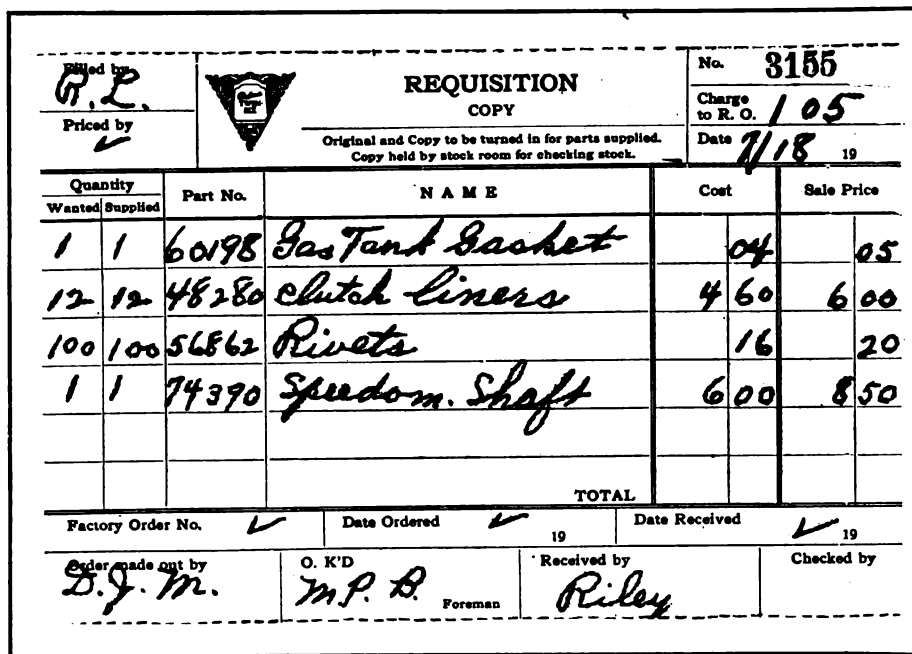 Filled by
R. L.
Priced by
✓
REQUISITION
COPY
Original and Copy to be turned in for parts supplied.
Copy held by stock room for checking stock.
No. 3155
Charge to R. O. 105
Date 7/18 19
Quantity Part No. NAME Cost Sale Price
Wanted Supplied
1 1 60198 Gas Tank Gasket 04 05
12 12 48280 Clutch liners 4 60 6 00
100 100 56862 Rivets 16 20
1 1 74390 Speedom. Shaft 6 00 8 50
TOTAL
Factory Order No. ✓ Date Ordered ✓ 19 Date Received ✓ 19
Order made out by O. K'D Received by Checked by
D. J. M. M. P. B. Foreman Riley